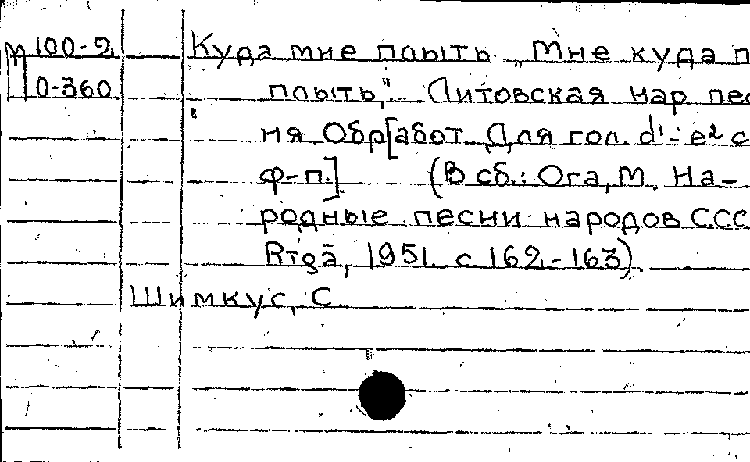 М 100-2 Куда мне плыть „Мне куда п
0-360 плыть," Литовская нар пес
ня Обр[абот. Для гол. d¹-e² с
ф-п.] (В сб.: Ога, М. На-
родные песни народов ССС
Rīgā, 1951. с 162-163)
Шимкус, С